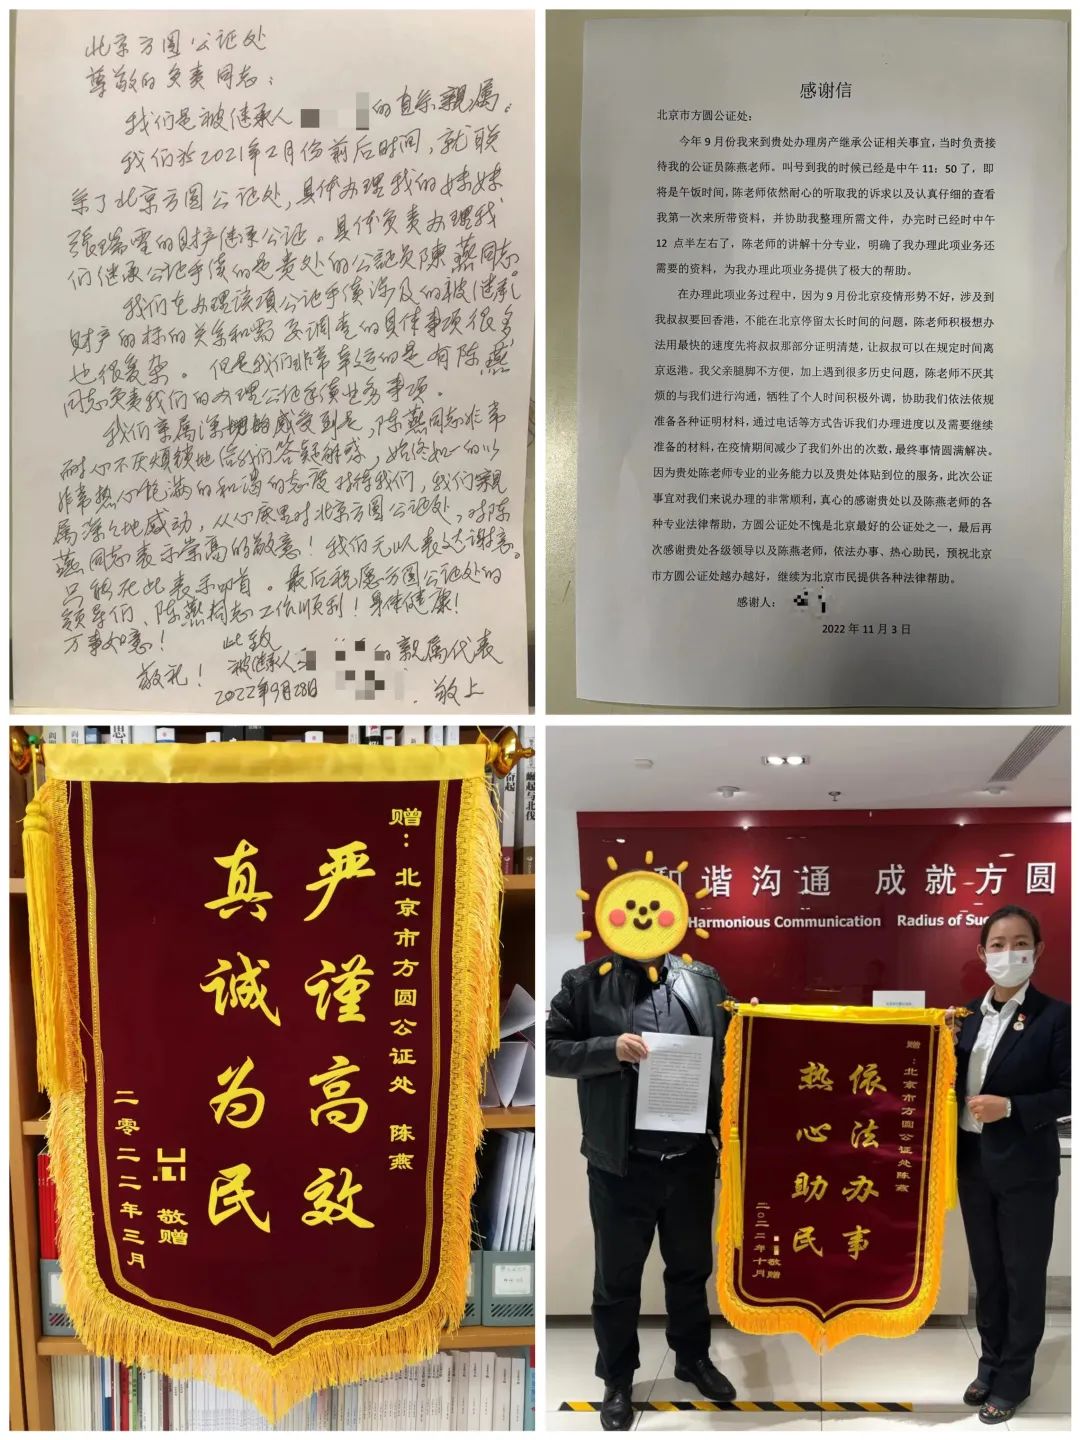 北京方圆公证处
尊敬的负责同志：
我们是被继承人 的直系亲属。
我们於2021年2月份前后时间，就联
系了北京方圆公证处，具体办理我的妹妹
張瑞雪的财产继承公证。具体负责办理我
们继承公证手续的是贵处的公証员陳燕同志
我们在办理该項公证手续涉及的被继承
财产的标的关系和需要调查的具体事项很多，
也很复杂。但是我们非常幸运的是有陈燕
同志负责我们的办理公证手续业务事项。
我们亲属深切的感受到是，陈燕同志非常
耐心不厌煩鎖地给我们答疑解惑，始终如一的以
非常热心饱满的和蔼的态度对待我们，我们親
属深深地感动，从心底里对北京方圆公证处，对陈
燕同志表示崇高的敬意！我们无以表达谢意。
只能在此表示叩首。最后祝愿方圆公证处的
领导们、陈燕同志工作顺利！身体健康！
万事如意！
此致
敬礼！
被继承人 的親属代表
2022年9月28日 敬上
感谢信
北京市方圆公证处：
今年 9 月份我来到贵处办理房产继承公证相关事宜，当时负责接
待我的公证员陈燕老师。叫号到我的时候已经是中午 11：50 了，即
将是午饭时间，陈老师依然耐心的听取我的诉求以及认真仔细的查看
我第一次来所带资料，并协助我整理所需文件，办完时已经时中午
12 点半左右了，陈老师的讲解十分专业，明确了我办理此项业务还
需要的资料，为我办理此项业务提供了极大的帮助。
在办理此项业务过程中，因为 9 月份北京疫情形势不好，涉及到
我叔叔要回香港，不能在北京停留太长时间的问题，陈老师积极想办
法用最快的速度先将叔叔那部分证明清楚，让叔叔可以在规定时间离
京返港。我父亲腿脚不方便，加上遇到很多历史问题，陈老师不厌其
烦的与我们进行沟通，牺牲了个人时间积极外调，协助我们依法依规
准备各种证明材料，通过电话等方式告诉我们办理进度以及需要继续
准备的材料，在疫情期间减少了我们外出的次数，最终事情圆满解决。
因为贵处陈老师专业的业务能力以及贵处体贴到位的服务，此次公证
事宜对我们来说办理的非常顺利，真心的感谢贵处以及陈燕老师的各
种专业法律帮助，方圆公证处不愧是北京最好的公证处之一，最后再
次感谢贵处各级领导以及陈燕老师，依法办事、热心助民，预祝北京
市方圆公证处越办越好，继续为北京市民提供各种法律帮助。
感谢人：
2022 年 11 月 3 日
赠：北京市方圆公证处 陈燕
严谨高效
真诚为民
敬赠
二零二二年三月
崛起与北伐
奋起
和谐沟通 成就方圆
Harmonious Communication Radius of Suc
赠：北京市方圆公证处陈燕
依法办事
热心助民
敬赠
二〇二二年十月